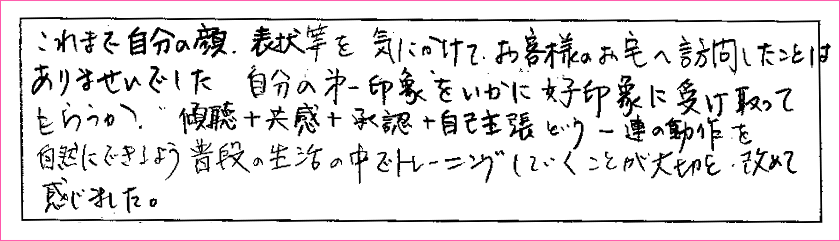 これまで自分の顔、表状等を気にかけて、お客様のお宅へ訪問したことは
ありませんでした 自分の第一印象をいかに好印象に受け取って
もらうか、傾聴+共感+承認+自己主張という一連の動作を
自然にできるよう普段の生活の中でトレーニングしていくことが大切と、改めて
感じました。